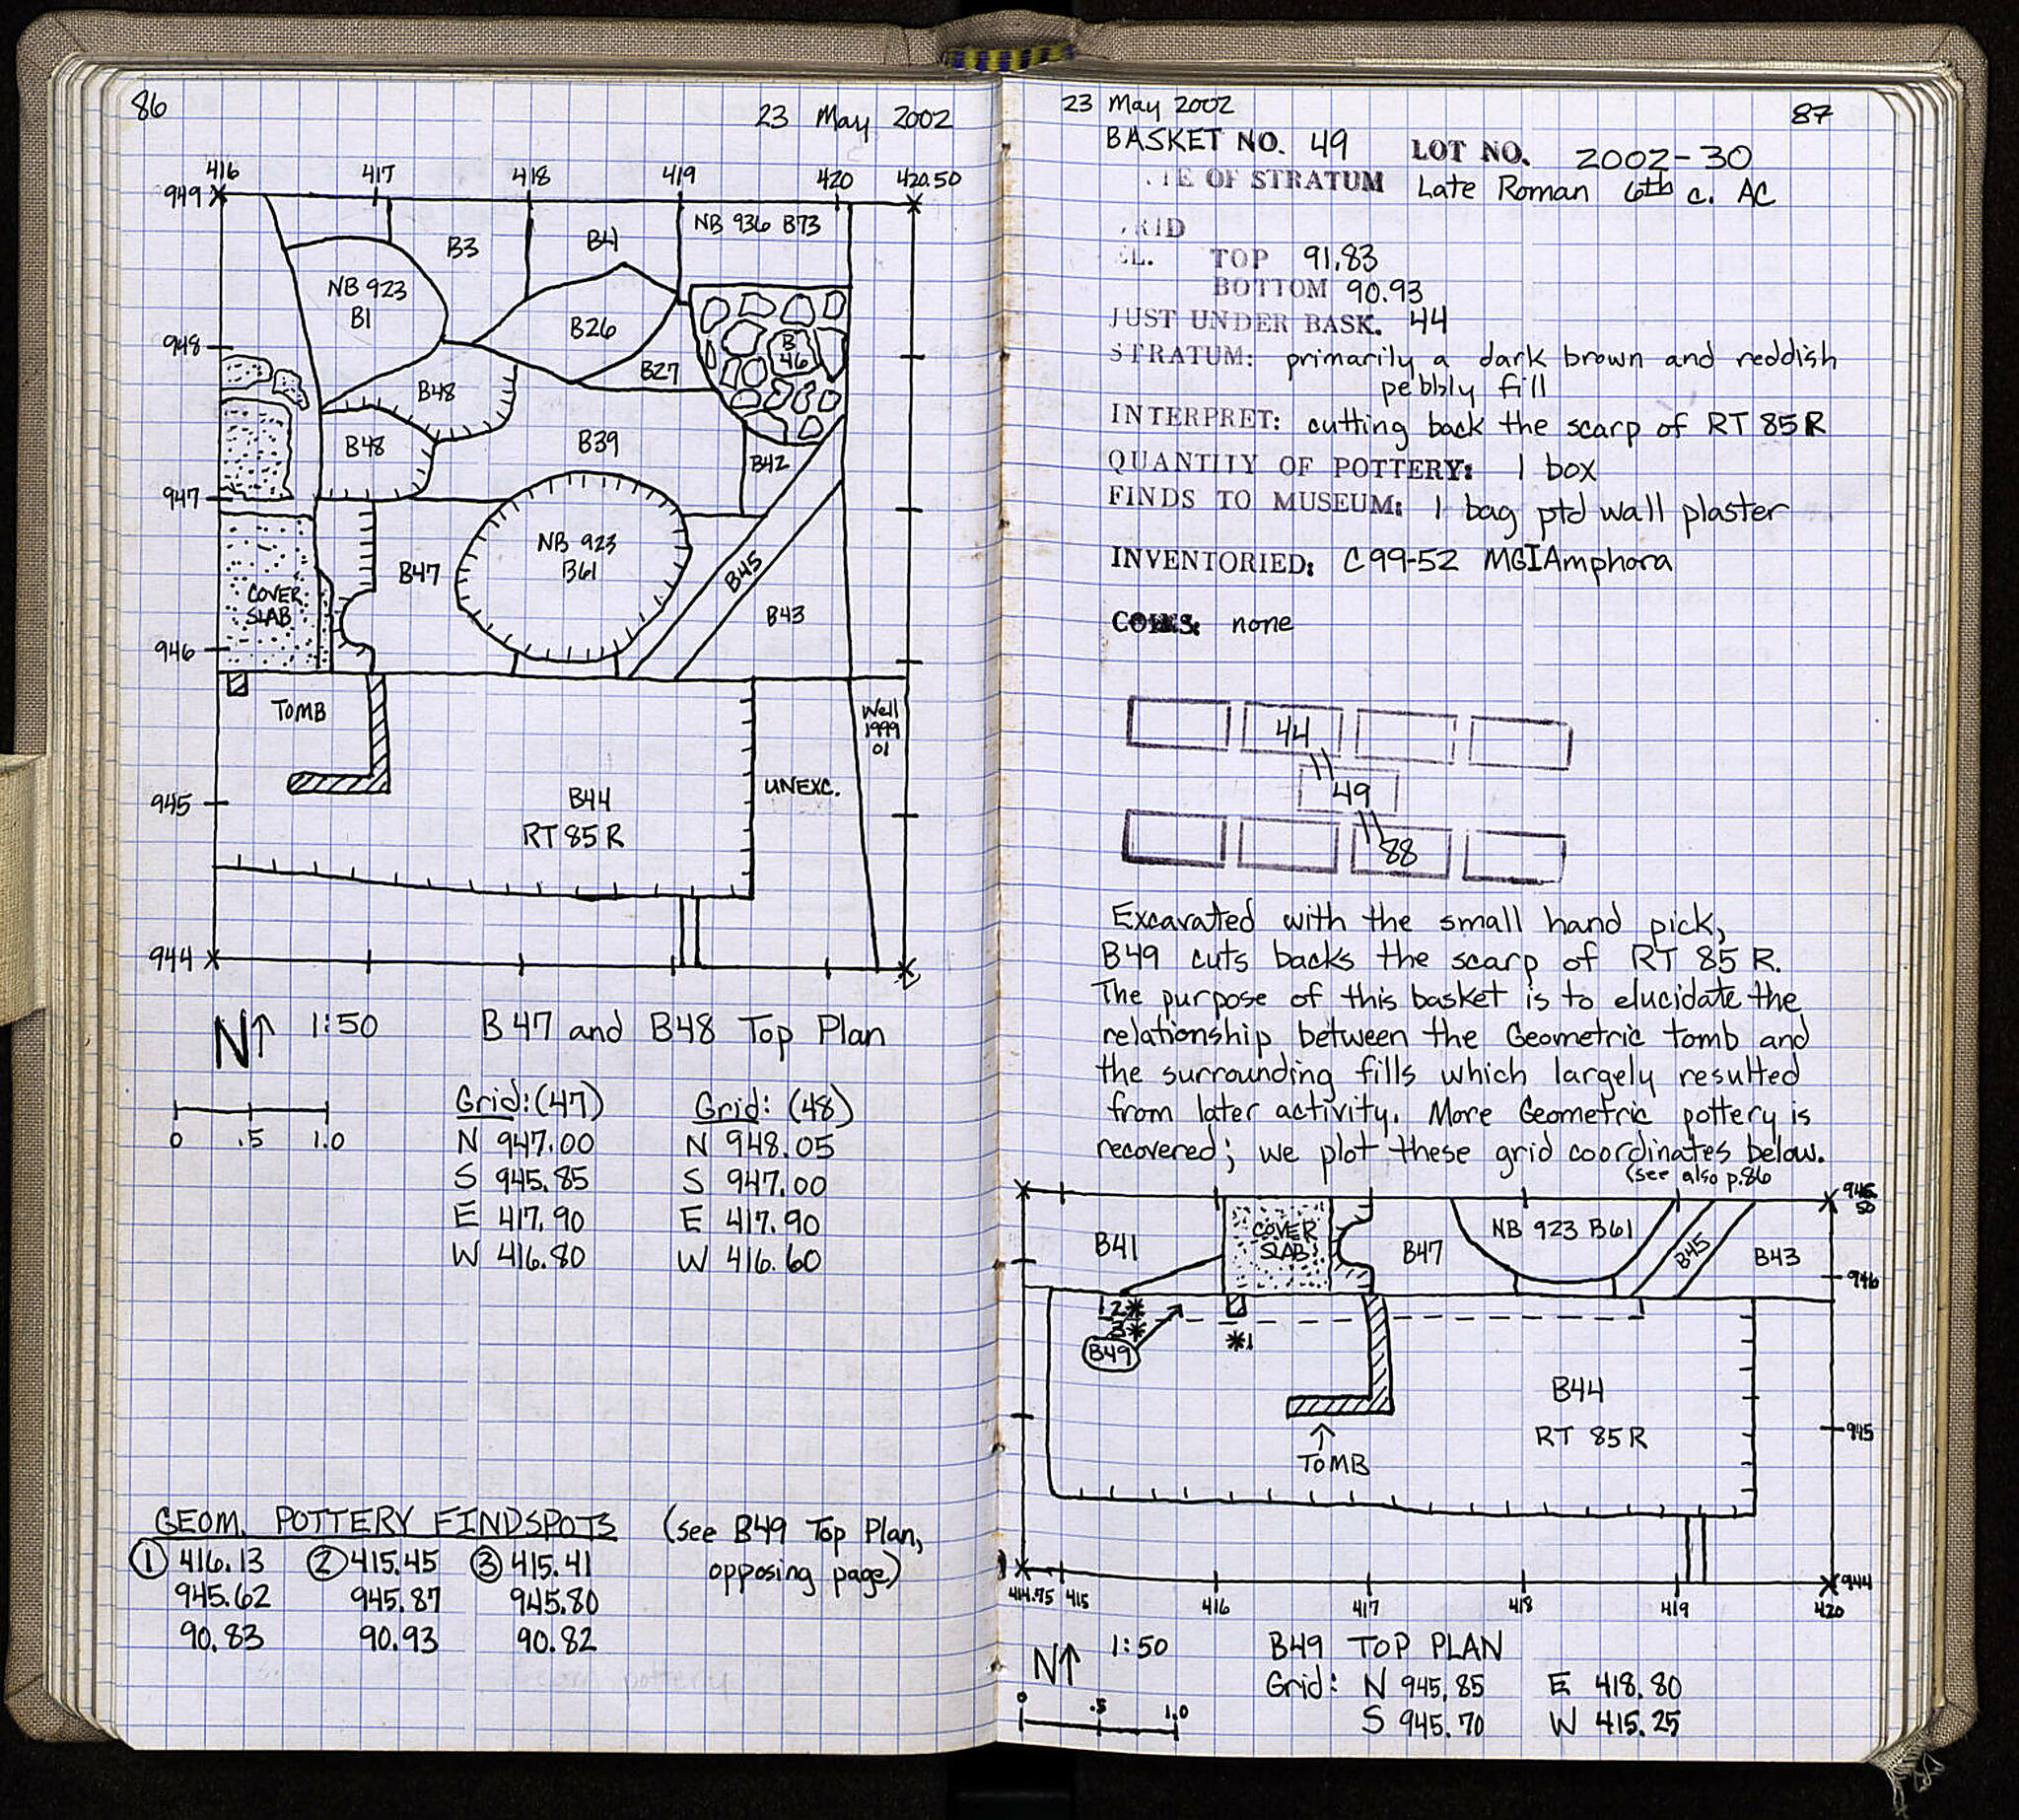 86
23 May 2002
416
417
418
419
420
420.50
949
B3
B4
NB 936 B73
NB 923
B1
B26
B
46
948
B27
B48
B48
B39
B42
947
NB 923
B61
B47
B45
COVER
SLAB
B43
946
TOMB
Well
1999
01
UNEXC.
945
B44
RT 85 R
944
N↑ 1:50 B 47 and B48 Top Plan
0 .5 1.0
Grid:(47) Grid: (48)
N 947.00 N 948.05
S 945.85 S 947.00
E 417.90 E 417.90
W 416.80 W 416.60
GEOM. POTTERY FINDSPOTS (see B49 Top Plan,
opposing page)
① 416.13 ② 415.45 ③ 415.41
945.62 945.87 945.80
90.83 90.93 90.82
23 May 2002
87
BASKET NO. 49 LOT NO. 2002-30
TE OF STRATUM Late Roman 6th c. AC
RID
EL. TOP 91.83
BOTTOM 90.93
JUST UNDER BASK. 44
STRATUM: primarily a dark brown and reddish
pebbly fill
INTERPRET: cutting back the scarp of RT 85 R
QUANTITY OF POTTERY: 1 box
FINDS TO MUSEUM: 1 bag ptd wall plaster
INVENTORIED: C99-52 MGIAmphora
COINS: none
44
49
88
Excavated with the small hand pick,
B49 cuts backs the scarp of RT 85 R.
The purpose of this basket is to elucidate the
relationship between the Geometric tomb and
the surrounding fills which largely resulted
from later activity. More Geometric pottery is
recovered; we plot these grid coordinates below.
(see also p.86
946.
50
B41
COVER
SLAB
B47
NB 923 B61
B45
B43
946
2*
3*
*1
B49
B44
RT 85 R
945
TOMB
944
414.75 415 416 417 418 419 420
N↑ 1:50 B49 TOP PLAN
Grid: N 945.85 E 418.80
S 945.70 W 415.25
0 .5 1.0